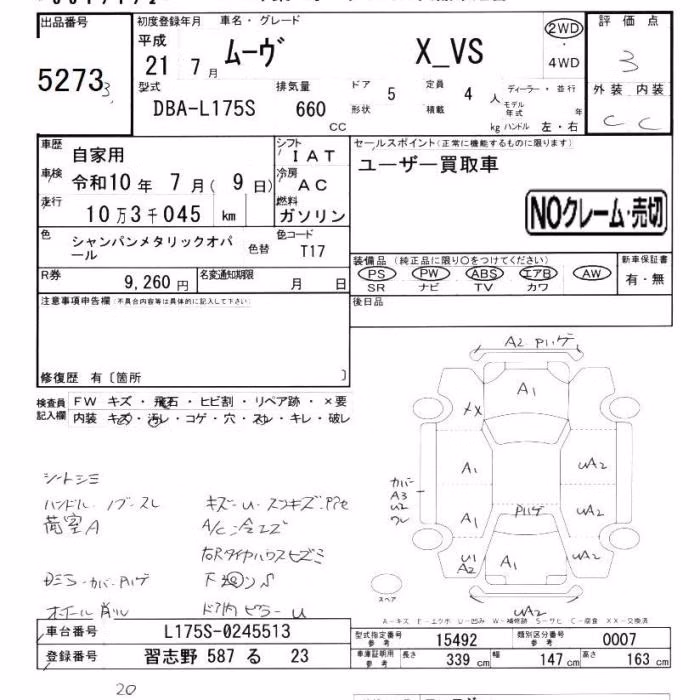 出品番号
5273
3
初度登録年月 車名・グレード
平成
21 7月 ムーヴ X_VS
2WD
・
4WD
評価点
3
外装 内装
C C
型式 排気量 ドア 5 定員 4 人 ディーラー・並行
DBA-L175S 660 CC 形状 積載 kg モデル年式 年
ハンドル 左・右
車歴 自家用
シフト IAT
車検 令和10年 7月( 9日)
冷房 AC
走行 10万3千045 km
燃料 ガソリン
色 シャンパンメタリックオパール 色替
色コード T17
R券 9,260円 名変通知期限 月 日
セールスポイント(正常に機能するものに限ります)
ユーザー買取車
NOクレーム・売切
装備品 (純正品に限り○をつけてください)
PS PW ABS エアB AW
SR ナビ TV カワ
新車保証書
有・無
後日品
注意事項申告欄(不具合内容等は具体的に記入して下さい)
修復歴 有〔箇所 〕
検査員記入欄
FW キズ・飛石・ヒビ割・リペア跡・×要
内装 キズ・汚レ・コゲ・穴・スレ・キレ・破レ
A2 Pハゲ
A1
XX
A1 UA2
カバー
A3
U2
ワレ
A1 Pハゲ UA2
U1
A2
A1
UA2
スペア
シートシミ
ハンドル・ノブ・スレ
荷室A
A/C
ホイール削ル
A-キズ E-エクボ U-凹み W-補修跡 S-サビ C-腐食 XX-交換済
車台番号 L175S-0245513
登録番号 習志野 587 る 23
型式指定番号 参考 15492 類別区分番号 参考 0007
車庫証明用 参考 長さ 339cm 幅 147cm 高さ 163cm
20